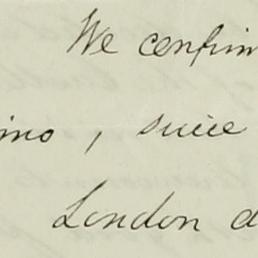 We confirm
ino, since
London d